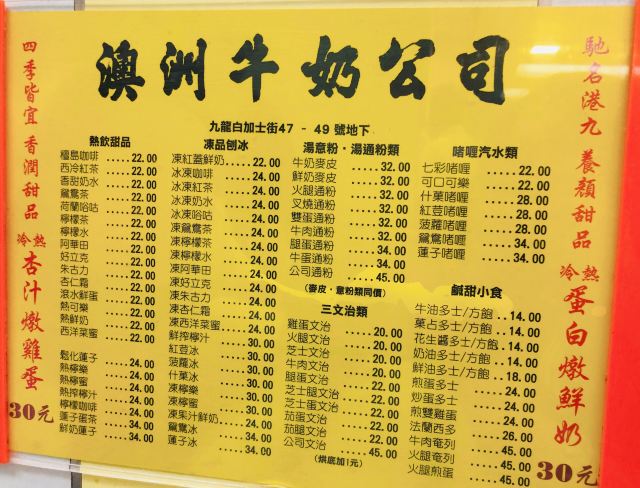 澳洲牛奶公司
九龍白加士街47 - 49 號地下
四季皆宜 香潤甜品
冷熱 杏汁燉雞蛋
30元
熱飲甜品
檀島咖啡 .....22.00
西冷紅茶 .....22.00
香甜奶水 .....22.00
荷蘭哈咕 .....22.00
鴛鴦茶 .....22.00
檸檬茶 .....22.00
檸檬水 .....22.00
阿華田 .....22.00
好立克 .....22.00
朱古力 .....22.00
杏仁霜 .....22.00
滾水鮮蛋 .....22.00
熱可樂 .....22.00
熱鮮奶 .....22.00
西洋菜蜜 .....22.00
鬆化蓮子 .....24.00
熱檸樂 .....24.00
熱檸蜜 .....24.00
熱搾檸汁 .....24.00
檸檬咖啡 .....24.00
蓮子蛋茶 .....34.00
鮮奶蓮子 .....34.00
凍品刨冰
凍紅蓋鮮奶 .....22.00
冰凍咖啡 .....24.00
冰凍紅茶 .....24.00
冰凍奶水 .....24.00
冰凍哈咕 .....24.00
凍鴛鴦茶 .....24.00
凍檸檬茶 .....24.00
凍檸檬水 .....24.00
凍阿華田 .....24.00
凍好立克 .....24.00
凍朱古力 .....24.00
凍杏仁霜 .....24.00
凍西洋菜蜜 .....24.00
鮮搾檸汁 .....30.00
紅荳冰 .....30.00
菠蘿冰 .....30.00
什菓冰 .....30.00
凍檸樂 .....30.00
凍檸蜜 .....30.00
凍菓汁鮮奶 .....24.00
鴛鴦冰 .....34.00
蓮子冰 .....34.00
湯意粉·湯通粉類
牛奶麥皮 .....32.00
鮮奶麥皮 .....32.00
火腿通粉 .....32.00
叉燒通粉 .....32.00
雙蛋通粉 .....32.00
牛肉通粉 .....32.00
腿蛋通粉 .....34.00
牛蛋通粉 .....34.00
公司通粉 .....45.00
(麥皮·意粉類同價)
三文治類
雞蛋文治 .....20.00
火腿文治 .....20.00
芝士文治 .....20.00
牛肉文治 .....20.00
腿蛋文治 .....22.00
芝士腿文治 .....22.00
芝士蛋文治 .....22.00
茄蛋文治 .....22.00
茄腿文治 .....22.00
公司文治 .....45.00
(烘底加1元)
啫喱汽水類
七彩啫喱 .....22.00
可口可樂 .....22.00
什菓啫喱 .....28.00
紅荳啫喱 .....28.00
菠蘿啫喱 .....28.00
鴛鴦啫喱 .....34.00
蓮子啫喱 .....34.00
鹹甜小食
牛油多士/方飽 ..14.00
菓占多士/方飽 ..14.00
花生醬多士/方飽 ..14.00
奶油多士/方飽 ..14.00
鮮油多士/方飽 ..18.00
煎蛋多士 .....24.00
炒蛋多士 .....24.00
煎雙雞蛋 .....24.00
法蘭西多 .....26.00
牛肉奄列 .....45.00
火腿奄列 .....45.00
火腿煎蛋 .....45.00
馳名港九 養顏甜品
冷熱 蛋白燉鮮奶
30元